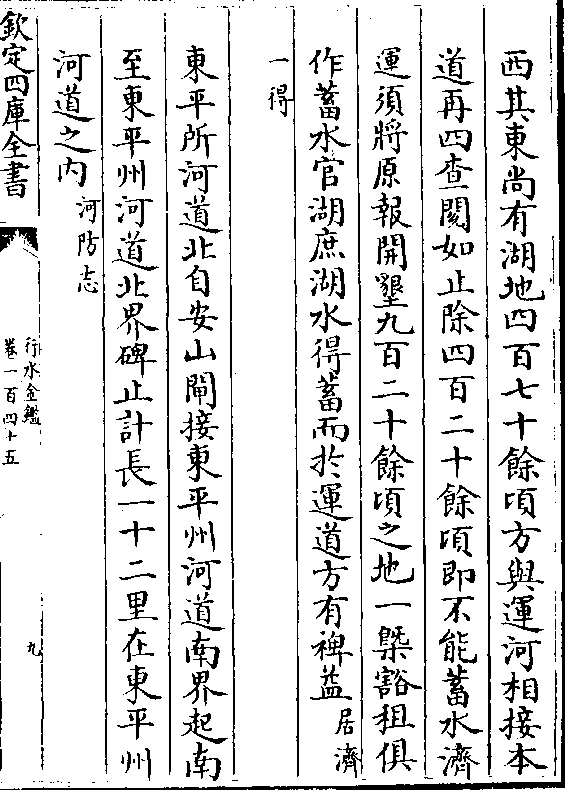 西其東尚有湖地四百七十餘頃方與運河相接本
道再四查閱如止除四百二十餘頃即不能蓄水濟
運須將原報開墾九百二十餘頃之地一槩豁租俱
作蓄水官湖庶湖水得蓄而於運道方有裨益居濟
一得
東平所河道北自安山閘接東平州河道南界起南
至東平州河道北界碑止計長一十二里在東平州
河道之內河防志
欽定四庫全書
行水金鑑
卷一百四十五
九